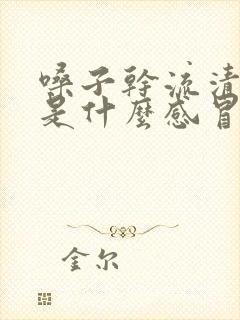 嗓子幹流清
是什麼感冒
金尔